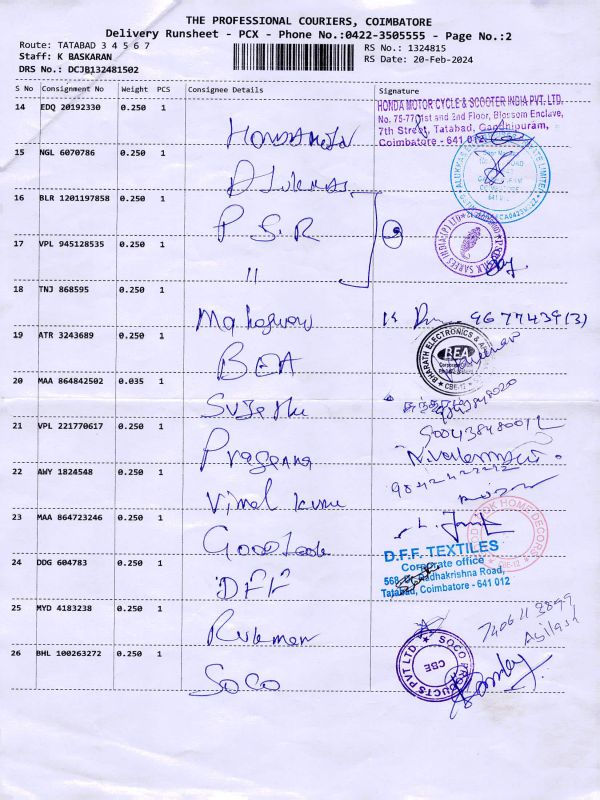 THE PROFESSIONAL COURIERS, COIMBATORE
Delivery Runsheet - PCX - Phone No.:0422-3505555 - Page No.:2
Route: TATABAD 3 4 5 6 7
RS No.: 1324815
Staff: K BASKARAN
RS Date: 20-Feb-2024
DRS No.: DCJB132481502
S No Consignment No Weight PCS Consignee Details Signature
14 EDQ 20192330 0.250 1
HONDA MOTOR CYCLE & SCOOTER INDIA PVT. LTD.
No. 75-77 01st and 2nd Floor, Blossom Enclave,
7th Street, Tatabad, Gandhipuram,
Coimbatore - 641 012
Honda Motor
15 NGL 6070786 0.250 1
Alukkas
16 BLR 1201197858 0.250 1
P S R
17 VPL 945128535 0.250 1
"
18 TNJ 868595 0.250 1
Maheswari
19 ATR 3243689 0.250 1
BEA
BHARATH ELECTRONICS &
BEA
CBE-12
20 MAA 864842502 0.035 1
Sujatha
21 VPL 221770617 0.250 1
Prasanna
22 AWY 1824548 0.250 1
Vimal Kumar
23 MAA 864723246 0.250 1
Good Look
LOOK HOME DECORS
CBE-12
24 DDG 604783 0.250 1
DFF
D.F.F. TEXTILES
Corporate office
568, Dr. Radhakrishna Road,
Tatabad, Coimbatore - 641 012
25 MYD 4183238 0.250 1
Rukman
Agilash
26 BHL 100263272 0.250 1
SOCO
SOCO PRODUCTS PVT LTD
CBE